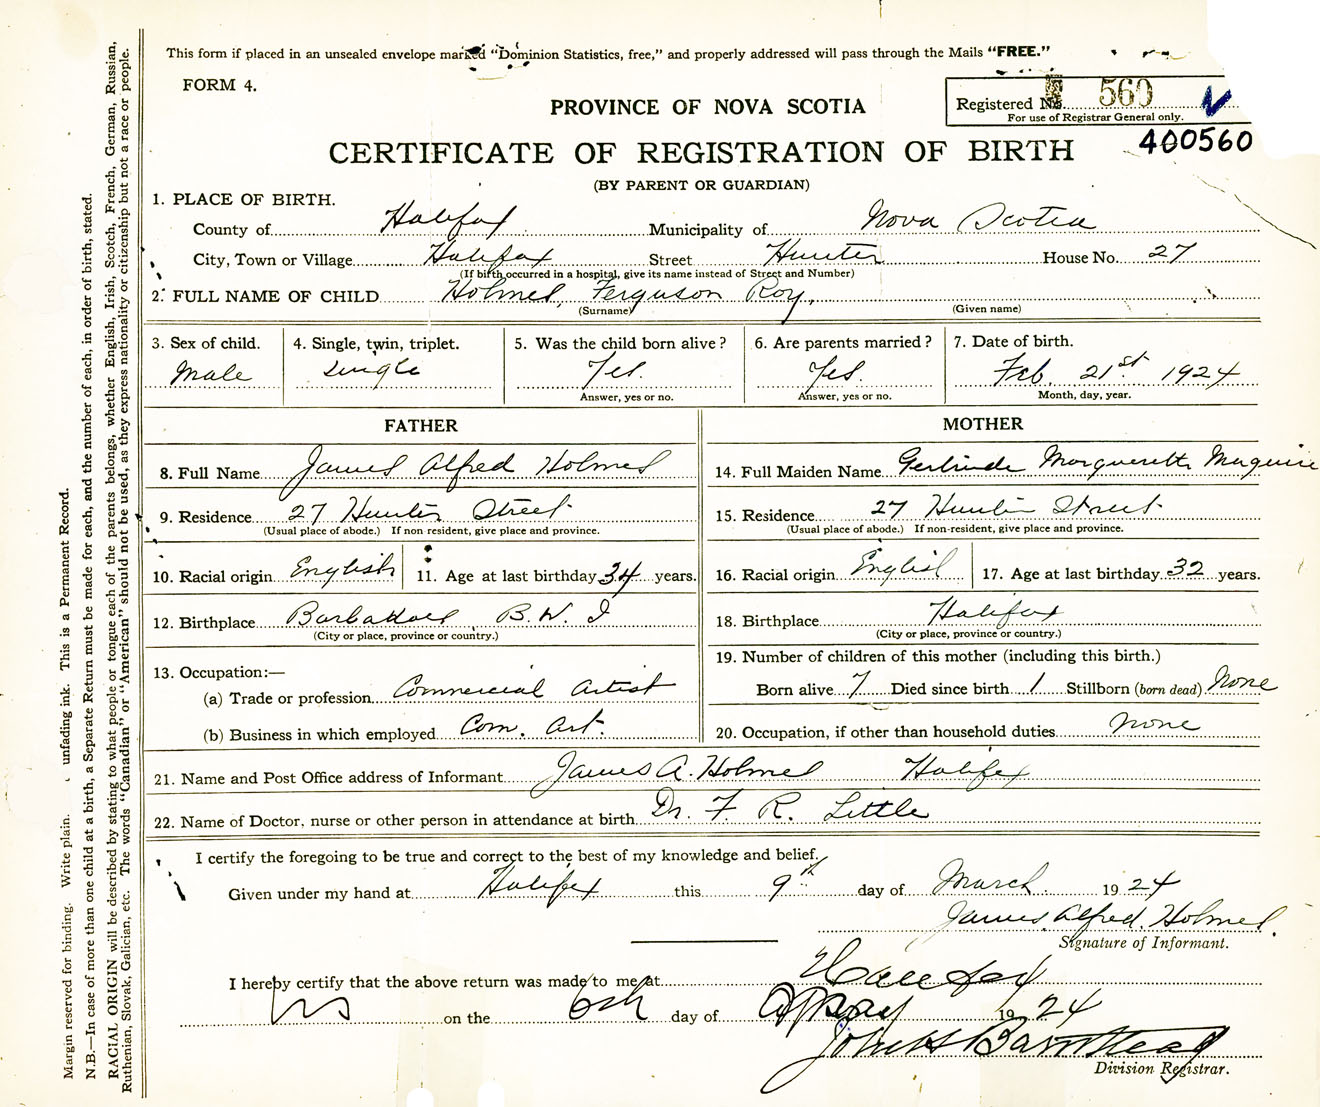 This form if placed in an unsealed envelope marked "Dominion Statistics, free," and properly addressed will pass through the Mails "FREE."
FORM 4.
Registered No. 560
For use of Registrar General only.
400560
PROVINCE OF NOVA SCOTIA
CERTIFICATE OF REGISTRATION OF BIRTH
(BY PARENT OR GUARDIAN)
1. PLACE OF BIRTH.
County of Halifax Municipality of Nova Scotia
City, Town or Village Halifax Street Hunter House No. 27
(If birth occurred in a hospital, give its name instead of Street and Number)
2. FULL NAME OF CHILD Holmes, Ferguson Roy,
(Surname) (Given name)
3. Sex of child. 4. Single, twin, triplet. 5. Was the child born alive? 6. Are parents married? 7. Date of birth.
Male Single Yes. Yes. Feb. 21st 1924
Answer, yes or no. Answer, yes or no. Month, day, year.
FATHER MOTHER
8. Full Name James Alfred Holmes 14. Full Maiden Name Gertrude Marguerette Maguire
9. Residence 27 Hunter Street 15. Residence 27 Hunter Street
(Usual place of abode.) If non-resident, give place and province. (Usual place of abode.) If non-resident, give place and province.
10. Racial origin English 11. Age at last birthday 34 years. 16. Racial origin English 17. Age at last birthday 32 years.
12. Birthplace Barbadoes B.W.I 18. Birthplace Halifax
(City or place, province or country.) (City or place, province or country.)
13. Occupation:— 19. Number of children of this mother (including this birth.)
(a) Trade or profession Commercial Artist Born alive 7 Died since birth 1 Stillborn (born dead) None
(b) Business in which employed Com. Art. 20. Occupation, if other than household duties None
21. Name and Post Office address of Informant James A. Holmes Halifax
22. Name of Doctor, nurse or other person in attendance at birth Dr. F. R. Little
I certify the foregoing to be true and correct to the best of my knowledge and belief.
Given under my hand at Halifax this 9th day of March 1924
James Alfred Holmes.
Signature of Informant.
I hereby certify that the above return was made to me at Halifax
on the 6th day of 1924
Division Registrar.
Margin reserved for binding. Write plain. unfading ink. This is a Permanent Record.
N.B.—In case of more than one child at a birth, a Separate Return must be made for each, and the number of each, in order of birth, stated.
RACIAL ORIGIN will be described by stating to what people or tongue each of the parents belongs, whether English, Irish, Scotch, French, German, Russian,
Ruthenian, Slovak, Galician, etc. The words "Canadian" or "American" should not be used, as they express nationality or citizenship but not a race or people.